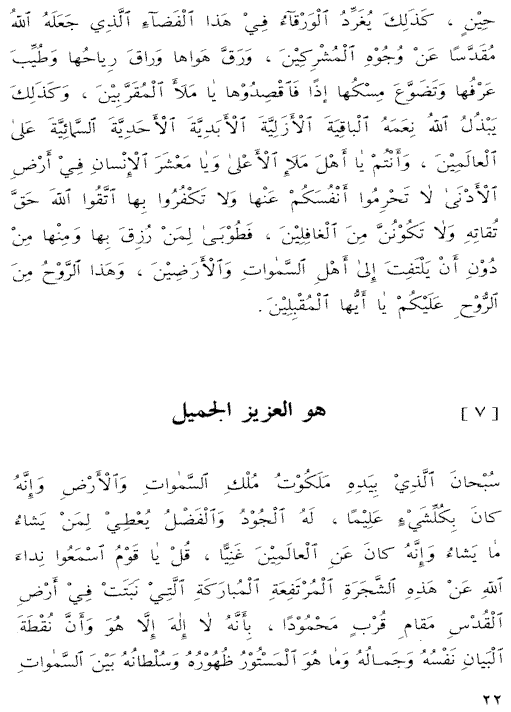 حِيْنٍ ، كَذٰلِكَ يُغَرِّدُ ٱلْوَرْقَآءُ فِيْ هٰذَا ٱلْفَضَآءِ ٱلَّذِي جَعَلَهُ ٱللّٰهُ
مُقَدَّسًا عَنْ وُجُوْهِ ٱلْمُشْرِكِيْنَ ، وَرَقَّ هَواها وَراقَ رِياحُها وَطُيِّبَ
عَرْفُها وَتَضَوَّعَ مِسْكُها إِذًا فَٱقْصِدُوْها يٰا مَلَأَ ٱلْمُقَرَّبِيْنَ ، وَكَذٰلِكَ
يَبْذُلُ ٱللّٰهُ نِعَمَهُ ٱلْباقِيَةَ ٱلْأَزَلِيَّةَ ٱلْأَبَدِيَّةَ ٱلْأَحَدِيَّةَ ٱلسَّمٰائِيَّةَ عَلىٰ
ٱلْعالَمِيْنَ ، وَأَنْتُمْ يٰا أَهْلَ مَلَإِ ٱلْأَعْلىٰ وَيٰا مَعْشَرَ ٱلْإِنْسانِ فِيْ أَرْضِ
ٱلْأَدْنىٰ لٰا تَحْرِمُوا أَنْفُسَكُمْ عَنْها وَلٰا تَكْفُرُوا بِها ٱتَّقُوا ٱللّٰهَ حَقَّ
تُقاتِهِ وَلٰا تَكُوْنُنَّ مِنَ ٱلْغافِلِيْنَ ، فَطُوْبىٰ لِمَنْ رُزِقَ بِها وَمِنْها مِنْ
دُوْنِ أَنْ يَلْتَفِتَ إِلىٰ أَهْلِ ٱلسَّمٰواتِ وَٱلْأَرَضِيْنَ ، وَهٰذَا ٱلرَّوْحُ مِنَ
ٱلرُّوْحِ عَلَيْكُمْ يٰا أَيُّها ٱلْمُقْبِلِيْنَ .
[ ٧ ] هو العزيز الجميل
سُبْحانَ ٱلَّذِيْ بِيَدِهِ مَلَكُوْتُ مُلْكِ ٱلسَّمٰواتِ وَٱلْأَرْضِ وَإِنَّهُ
كانَ بِكُلِّشَيْءٍ عَلِيْمًا ، لَهُ ٱلْجُوْدُ وَٱلْفَضْلُ يُعْطِيْ لِمَنْ يَشاءُ
مٰا يَشاءُ وَإِنَّهُ كانَ عَنِ ٱلْعالَمِيْنَ غَنِيًّا ، قُلْ يٰا قَوْمُ ٱسْمَعُوا نِداءَ
ٱللّٰهِ عَنْ هٰذِهِ ٱلشَّجَرَةِ ٱلْمُرْتَفِعَةِ ٱلْمُبارَكَةِ ٱلَّتِيْ نَبَتَتْ فِيْ أَرْضِ
ٱلْقُدْسِ مَقامِ قُرْبٍ مَحْمُوْدًا ، بِأَنَّهُ لٰا إِلٰهَ إِلَّا هُوَ وَأَنَّ نُقْطَةَ
ٱلْبَيانِ نَفْسُهُ وَجَمالُهُ وَمٰا هُوَ ٱلْمَسْتُوْرُ ظُهُوْرُهُ وَسُلْطانُهُ بَيْنَ ٱلسَّمٰواتِ
٢٢